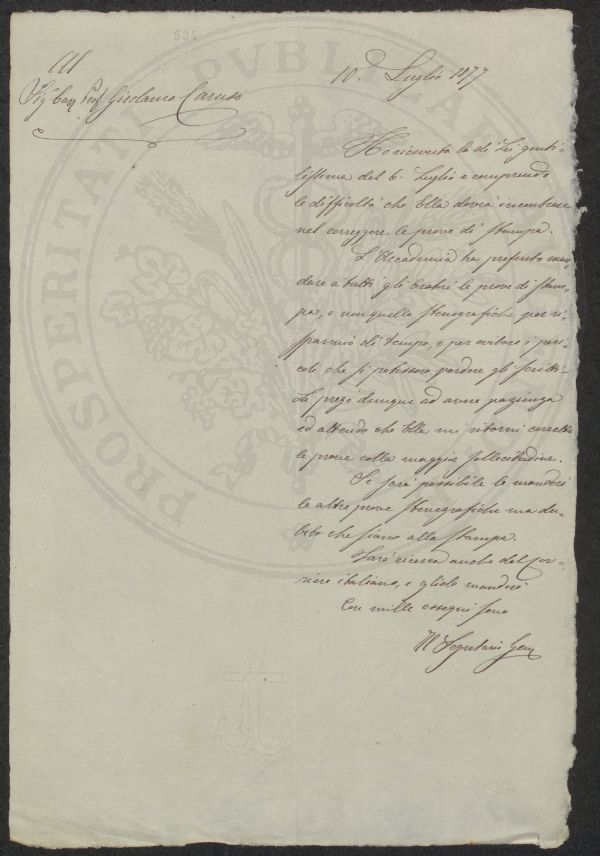 Ill
Sigr Cav Prof Girolamo Caruso
10 Luglio 1877
Ho ricevuta la di Lei genti-
lissima del 6. Luglio e comprendo
le difficoltà che Ella dovrà incontrare
nel correggere le prove di stampa.
L'Accademia ha preferito man-
dare a tutti gli Oratori le prove di stam-
pa, e non quelle stenografiche per ri-
sparmio di tempo, e per evitare i peri-
coli che si potessero perdere gli scritti.
La prego dunque ad avere pazienza
ed attendo che Ella mi ritorni corrette
le prove colla maggior sollecitudine.
Se sarà possibile le manderò
le altre prove stenografiche ma du-
bito che siano alla stampa.
Farò ricerca anche del Cor-
riere italiano, e glielo manderò
Con mille ossequi sono
Il Segretario Gen
PROSPERITATI PVBLICAE